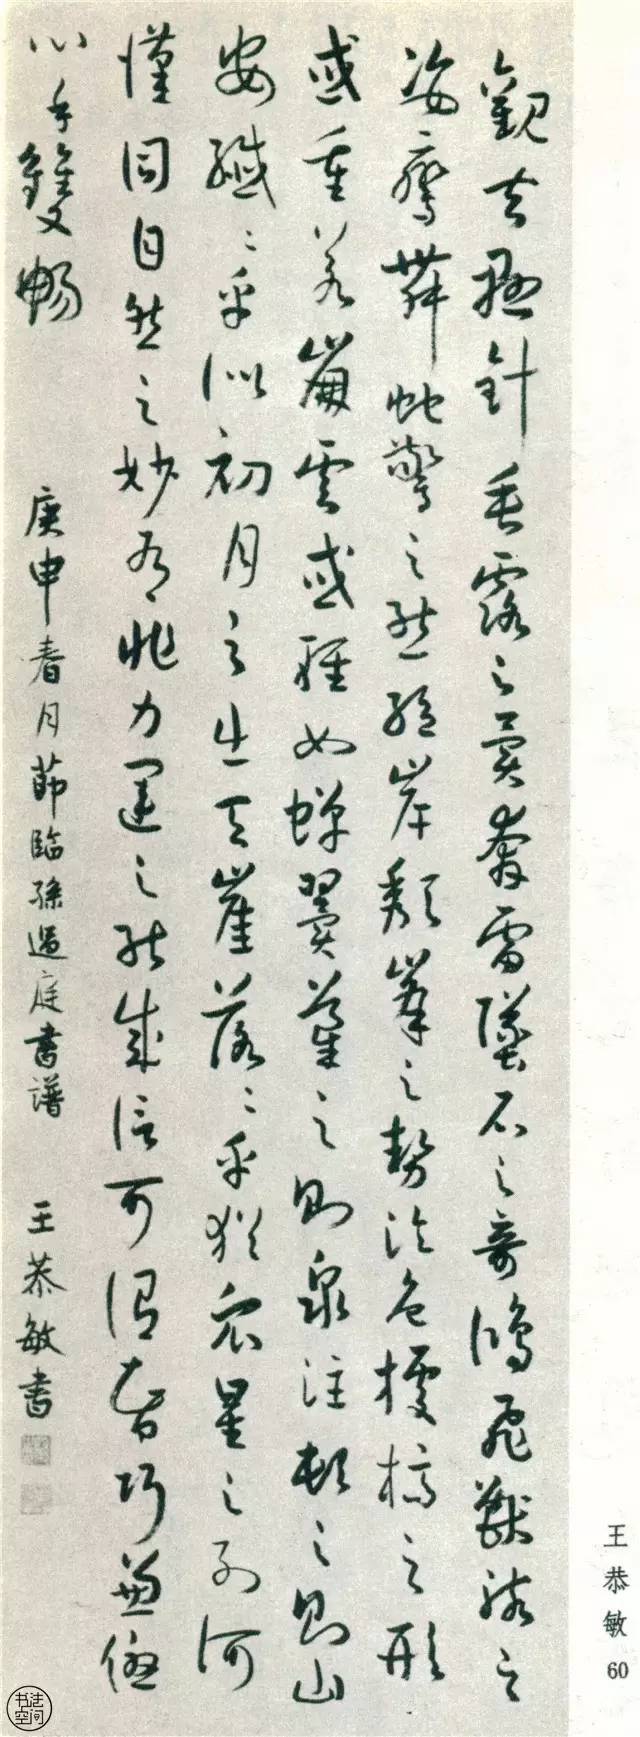 觀夫懸針垂露之異奔雷墜石之奇鴻飛獸駭之
姿鸞舞蛇驚之態絕岸頹峯之勢臨危據槁之形
或重若崩雲或輕如蟬翼導之則泉注頓之則山
安纖〻乎似初月之出天崖落〻乎猶眾星之列河
漢同自然之妙有非力運之能成信可謂智巧兼優
心手雙暢 庚申春月節臨孫過庭書譜 王恭敏書
王恭敏
60
书法空间